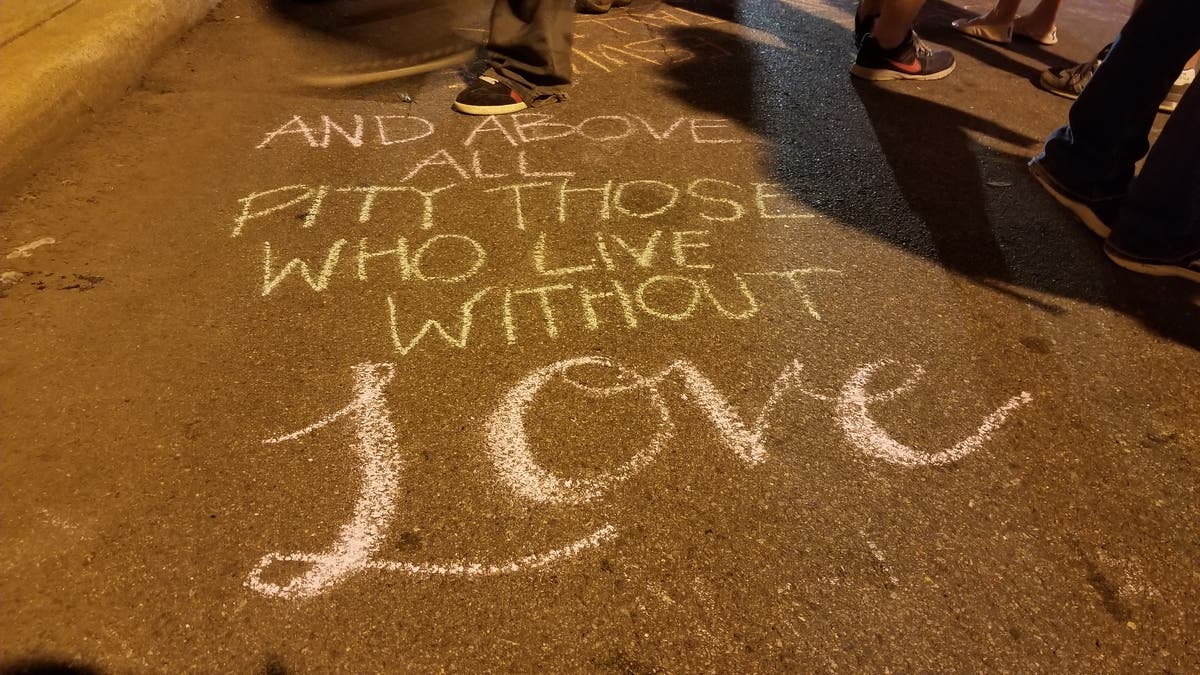 AND ABOVE
ALL
PITY THOSE
WHO LIVE
WITHOUT
Love